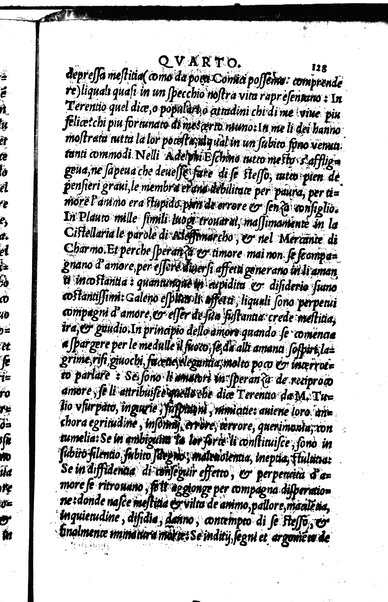 QVARTO. 128
depressa mestitia (como da poeti Comici possemo: comprende
re) liquali quasi in un specchio nostra vita rapresentano: In
Terentio quel dice, o populari, o cittadini chi di me viue piu
felice? chi piu fortunato di me? certo niuno: In me li dei hanno
mostrata tutta la lor potesta, al qual in un subito sono venuti
tanti commodi. Nelli Adelphi Eschino tutto mesto s'afflig=
geua, ne sapeua che deuesse fare di se stesso, tutto pien de
pensieri graui, le membra erano debilitate per paura, per ti=
more l'animo era stupido, pien de errore & senza consiglio.
In Plauto mille simili luogi trouarai, massimamente in la
Cistellaria le parole di Alessimarcho, & nel Mercante di
Charmo. Et perche speranza & timore mai non se scompa=
gnano d'amore, per essere diuersi affetti generano in di aman
ti incostantia: quantunque in cupidita & disiderio siano
costantissimi: Galeno esplica li affetti, liquali sono perpetui
compagni d'amore, & essere de sua sustantia crede mestitia,
ira, & gaudio. In principio dello amore quando se comencia
a spargere per le medulle il fuoco, se da alli amanti sospiri, la=
grime, risi, giuochi, facetie, elegantia, molto poco & interrot=
to parlare: Se sono li amatori in speranza de reciproco
amore, se li attribuisce quello che dice Terentio da M. Tu=
lio vsurpato, ingiurie, suspitioni, nimicitie: auiene loro an=
chora egritudine, insonnij, errore, terrore, querimonia, con
tumelia: Se in ambiguo la lor sorte li constituisce, sono in
subito silentio, subito sdegno, maleuolentia, ineptia, stultitia:
Se in diffidentia di conseguir effetto, & perpetui d'a=
more se ritrouano, se li aggionge per compagna disperatio=
ne: donde nasce mestitia & vilta de animo, pallore, macilentia,
inquietudine, disidia, danno, contempto di se stesso, &
finalmente immatura morte: Se inditij, segni et argometo de